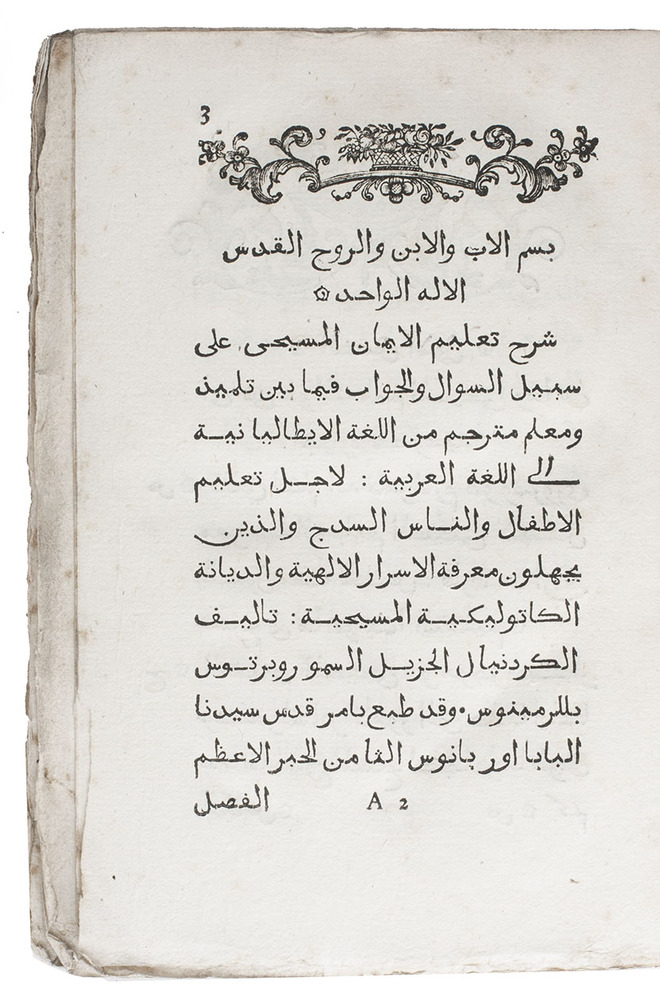 3
بسم الاب والابن والروح القدس
الاله الواحد ۞
شرح تعليم الايمان المسيحى على
سبيل السوال والجواب فيما بين تلميذ
ومعلم مترجم من اللغة الايطاليانية
الى اللغة العربية : لاجل تعليم
الاطفال والناس السدج والذين
يجهلون معرفة الاسرار الالهية والديانة
الكاتوليكية المسيحية : تاليف
الكردنيال الجزيل السمو روبرتوس
بللرمينوس • وقد طبع بامر قدس سيدنا
البابا اوربانوس الثامن الحبر الاعظم
A 2 الفصل